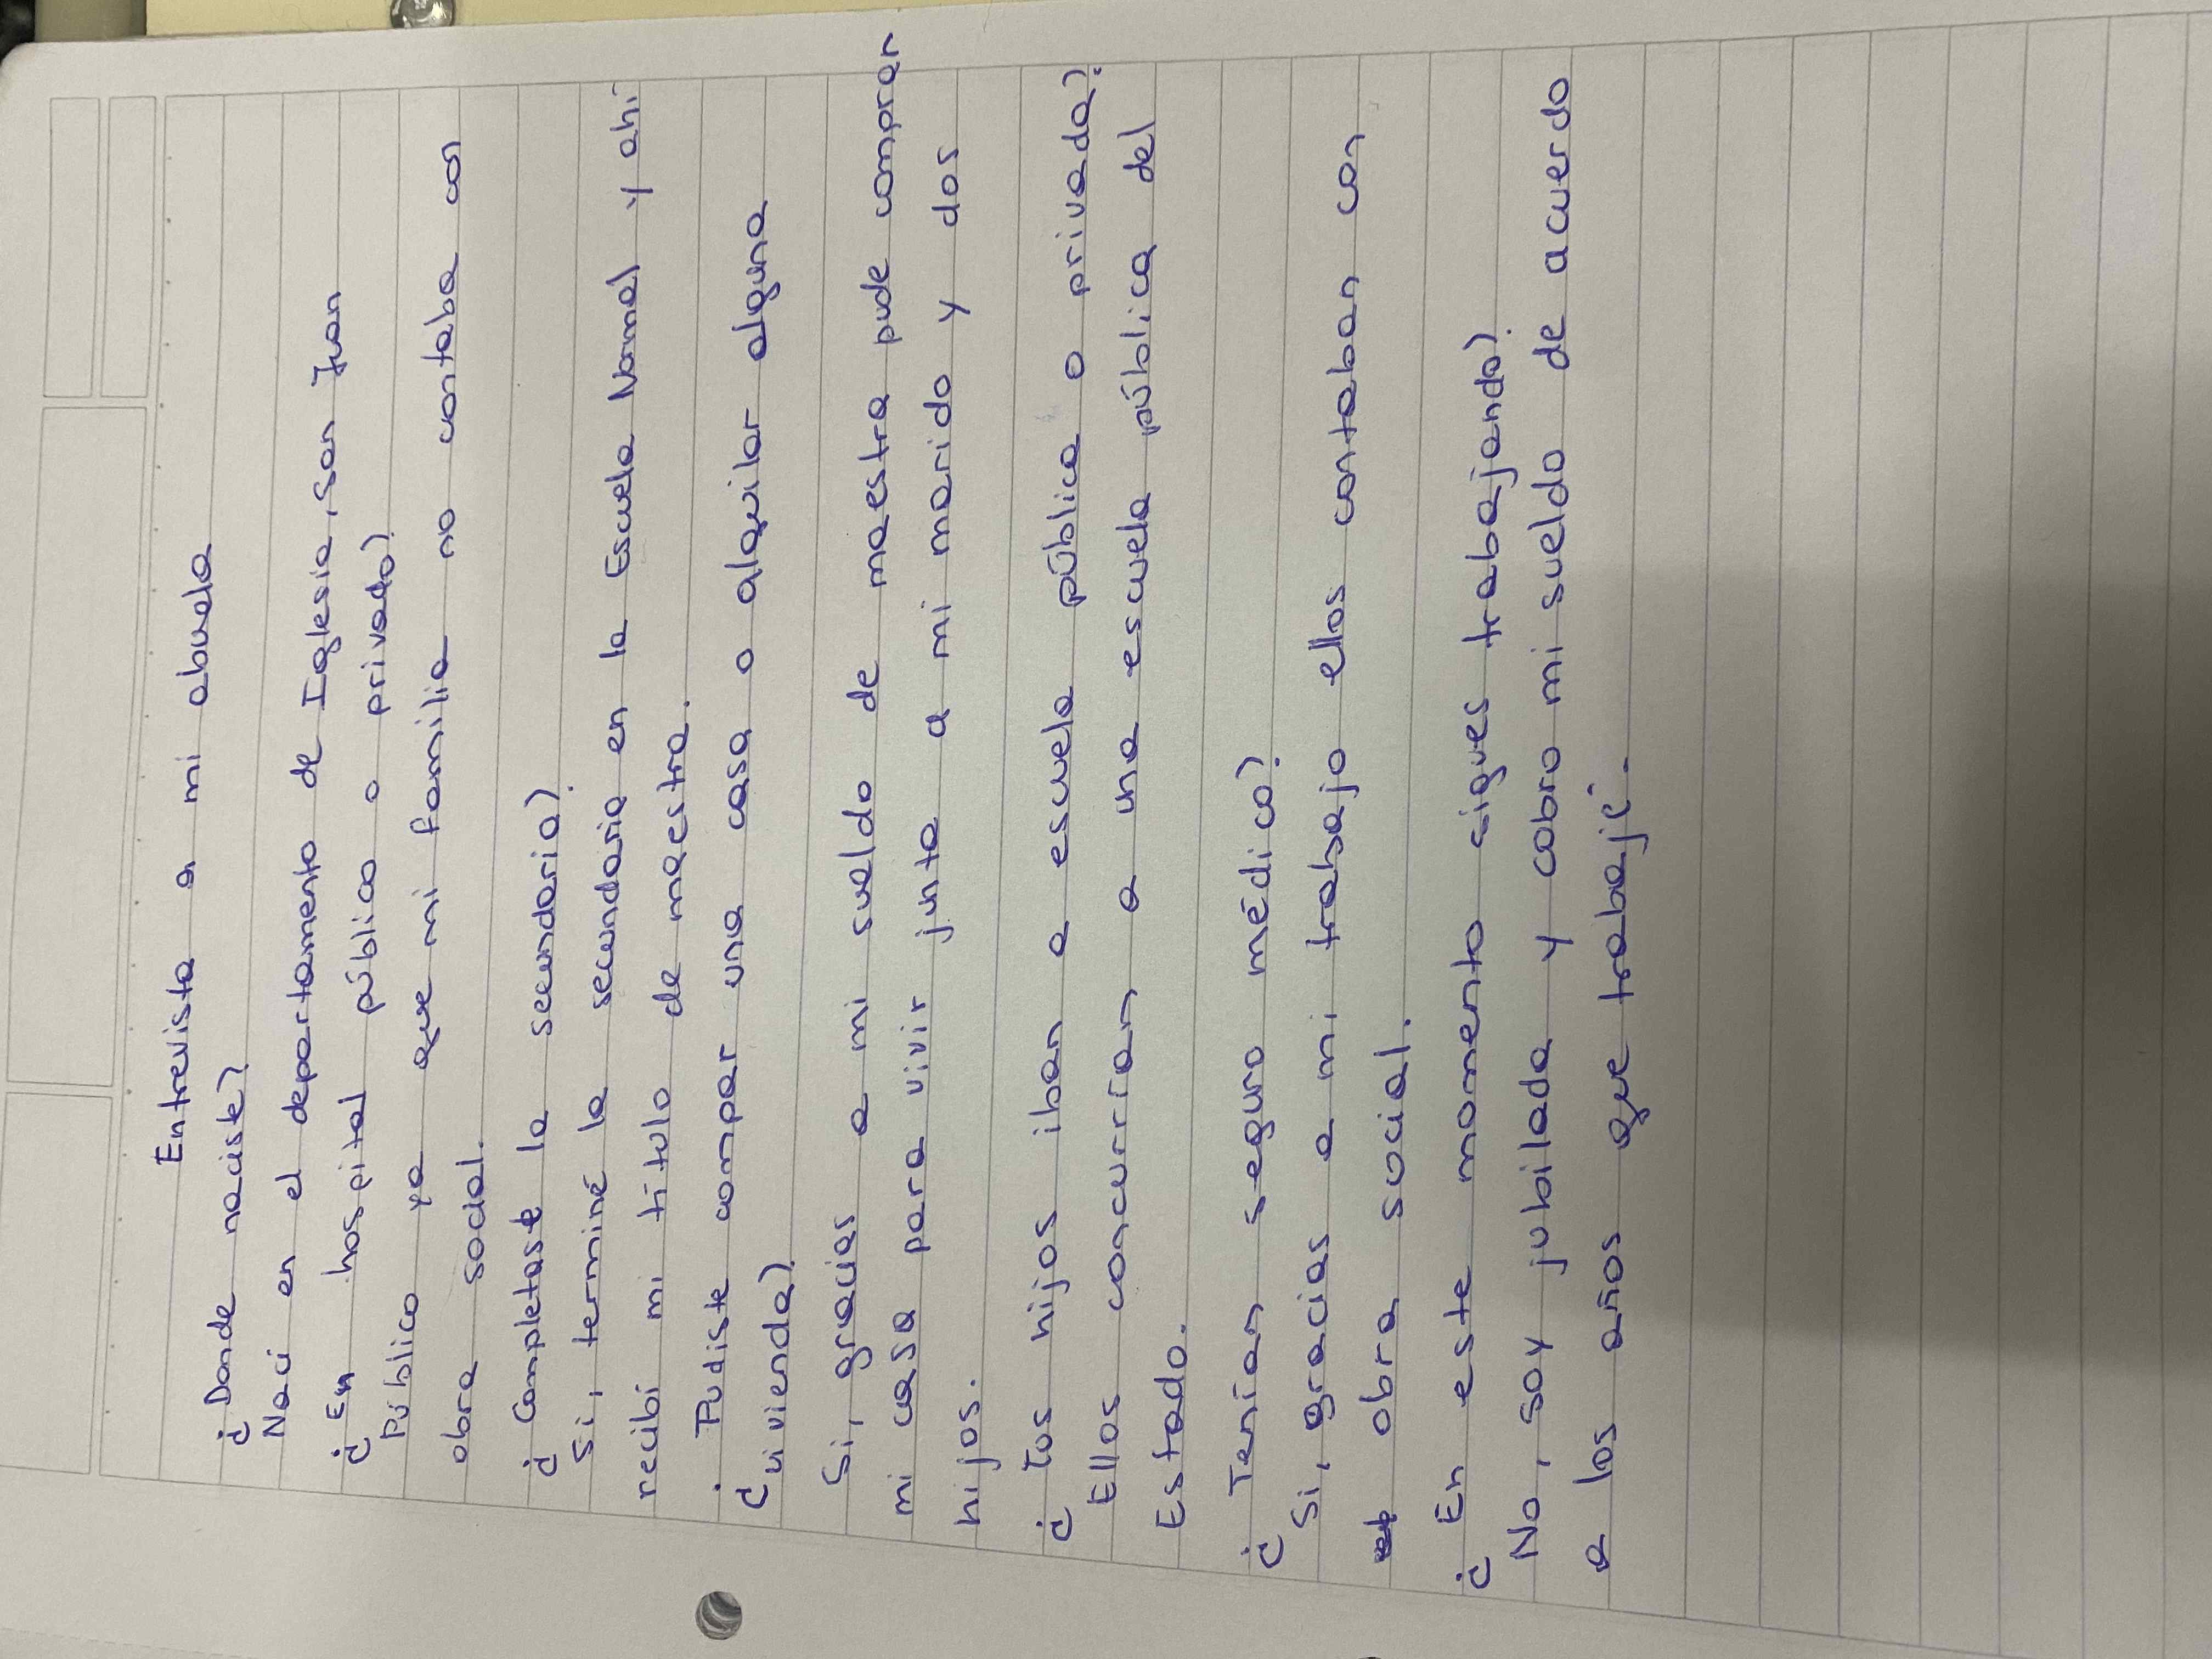 Entrevista a mi abuela
¿Donde naciste?
Naci en el departamento de Iglesia, San Juan
¿En hospital público o privado?
Público ya que mi familia no contaba con
obra social.
¿Completaste la secundaria?
Si, terminé la secundaria en la Escuela Normal y ahí
recibi mi título de maestra.
¿Pudiste compar una casa o alquilar alguna
vivienda?
Si, gracias a mi sueldo de maestra pude comprar
mi casa para vivir junto a mi marido y dos
hijos.
¿Tus hijos iban a escuela pública o privada?
Ellos concurrían a una escuela pública del
Estado.
¿Tenían seguro médico?
Si, gracias a mi trabajo ellos contaban con
obra social.
¿En este momento sigues trabajando?
No, soy jubilada y cobro mi sueldo de acuerdo
a los años que trabajé.